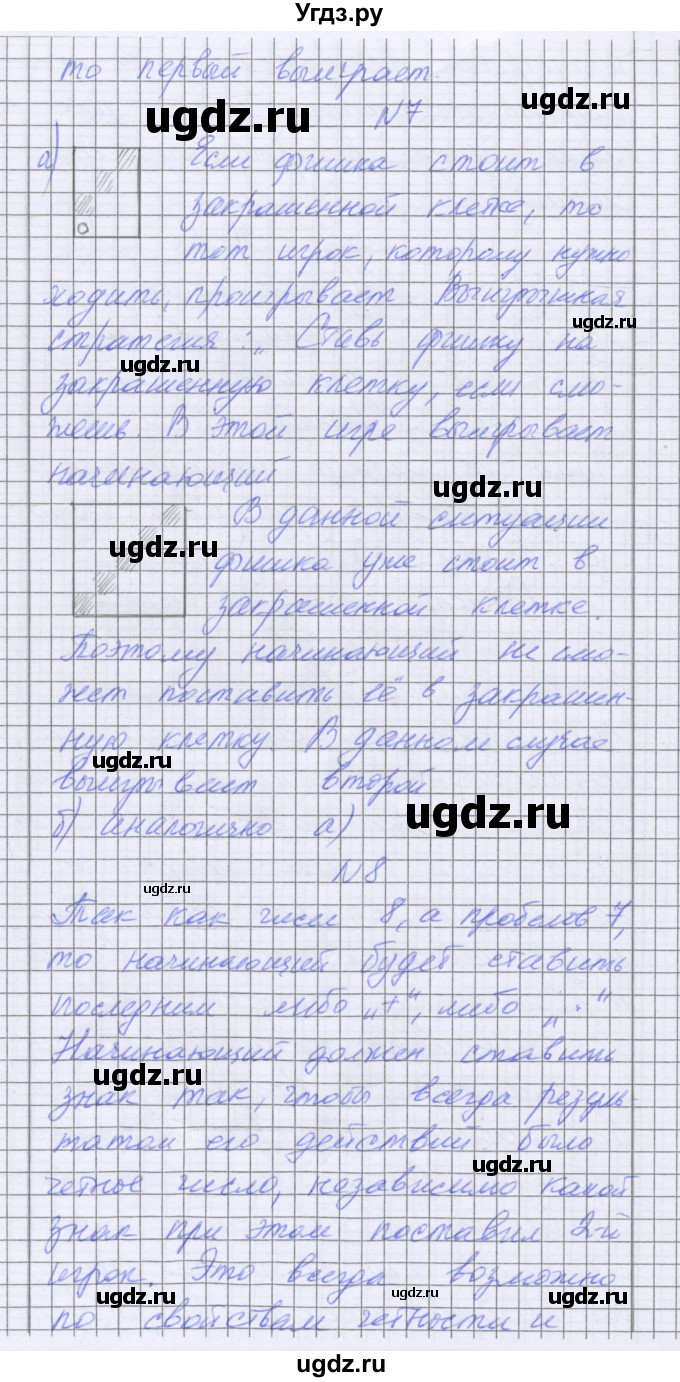 Угдз.ру
то первый выиграет.
ugdz.ru
ugdz.ru
N7
а)
Если фишка стоит в
закрашенной клетке, то
тот игрок, которому нужно
ходить, проигрывает. Выигрышная
ugdz.ru
стратегия: „Ставь фишку на
ugdz.ru
закрашенную клетку, если смо-
жешь. В этой игре выигрывает
начинающий
ugdz.ru
В данной ситуации
ugdz.ru
фишка уже стоит в
закрашенной клетке.
Поэтому начинающий не смо-
жет поставить её в закрашен-
ную клетку В данном случае
ugdz.ru
выигрывает второй
ugdz.ru
б) аналогично а)
N8
ugdz.ru
Так как чисел 8, а пробелов 7,
то начинающей будет ставить
последним либо „+“, либо „·“
Начинающий должен ставить
ugdz.ru
знак так, чтобы всегда резуль-
татом его действий было
ugdz.ru
четное число, независимо какой
знак при этом поставил 2-й
игрок. Это всегда возможно
ugdz.ru
ugdz.ru
ugdz.ru
по свойствам четности и
ugdz.ru